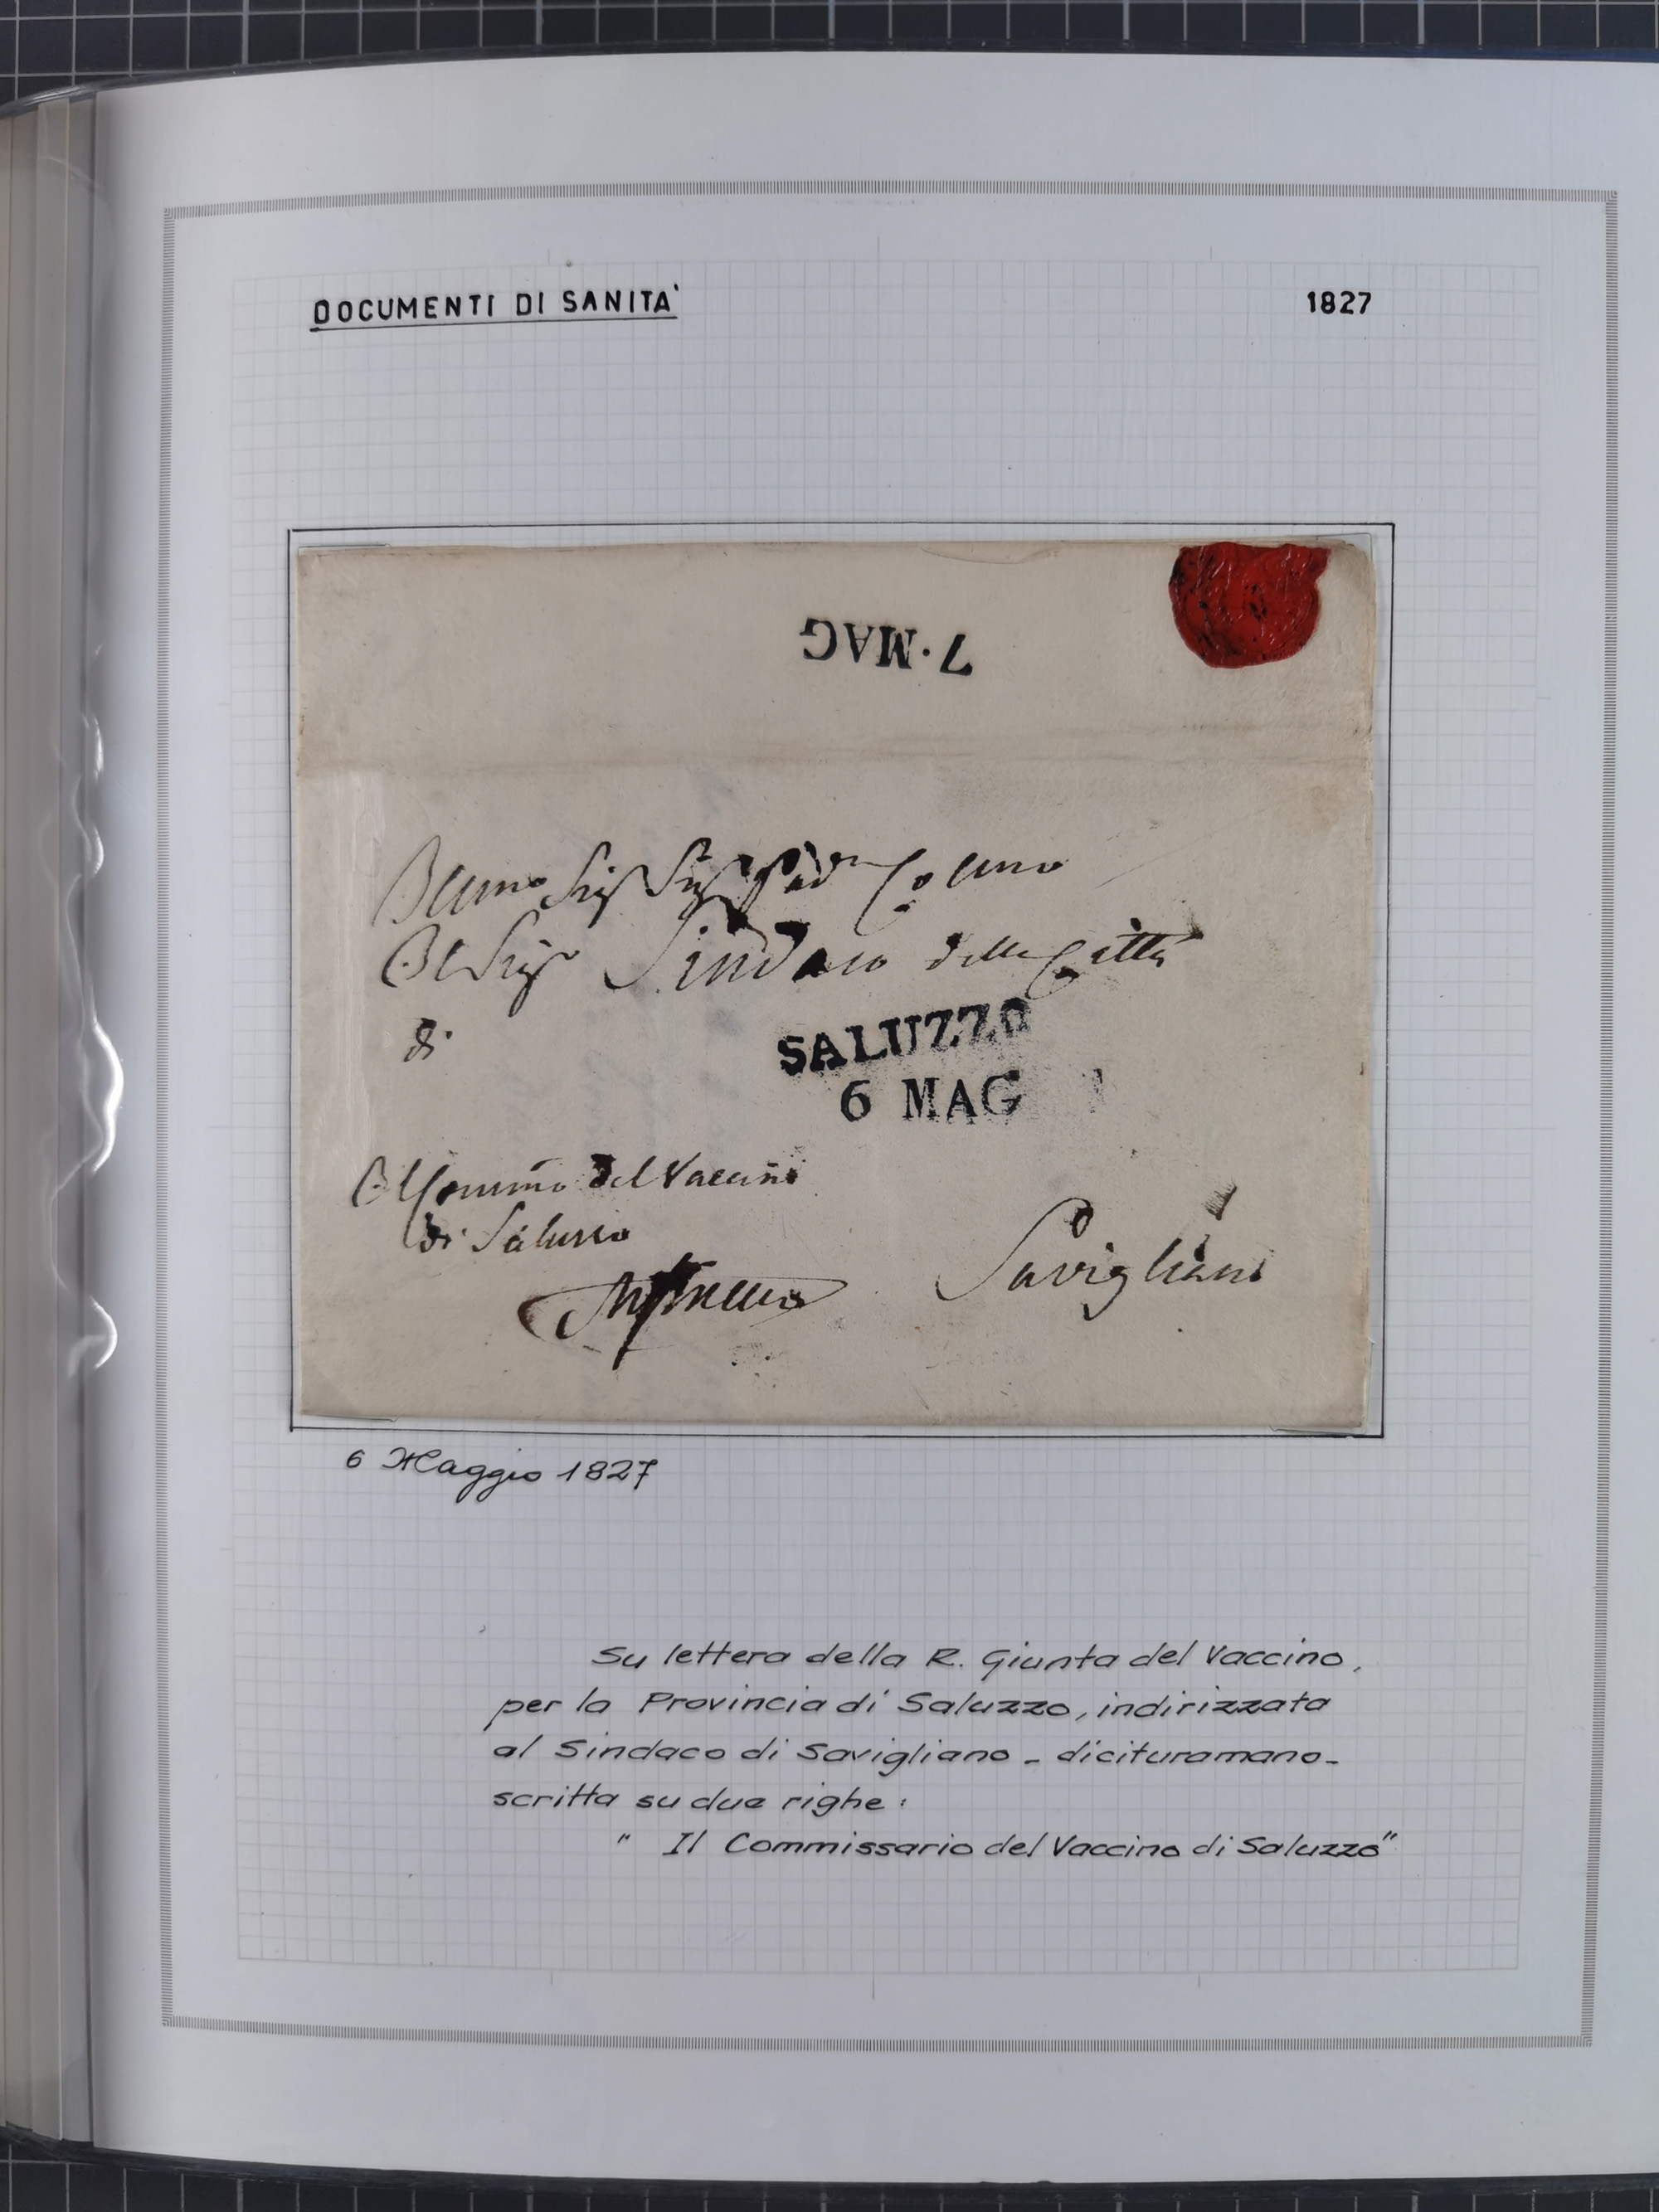 DOCUMENTI DI SANITA'
1827
7·MAG
Illmo Sig Sig Pad Colmo
Il Sig Sindaco della Città
di
SALUZZO
6 MAG
Il Commio del Vaccino
di Saluzzo
Savigliano
6 Maggio 1827
Su lettera della R. Giunta del Vaccino,
per la Provincia di Saluzzo, indirizzata
al Sindaco di Savigliano - dicitura mano-
scritta su due righe:
" Il Commissario del Vaccino di Saluzzo"